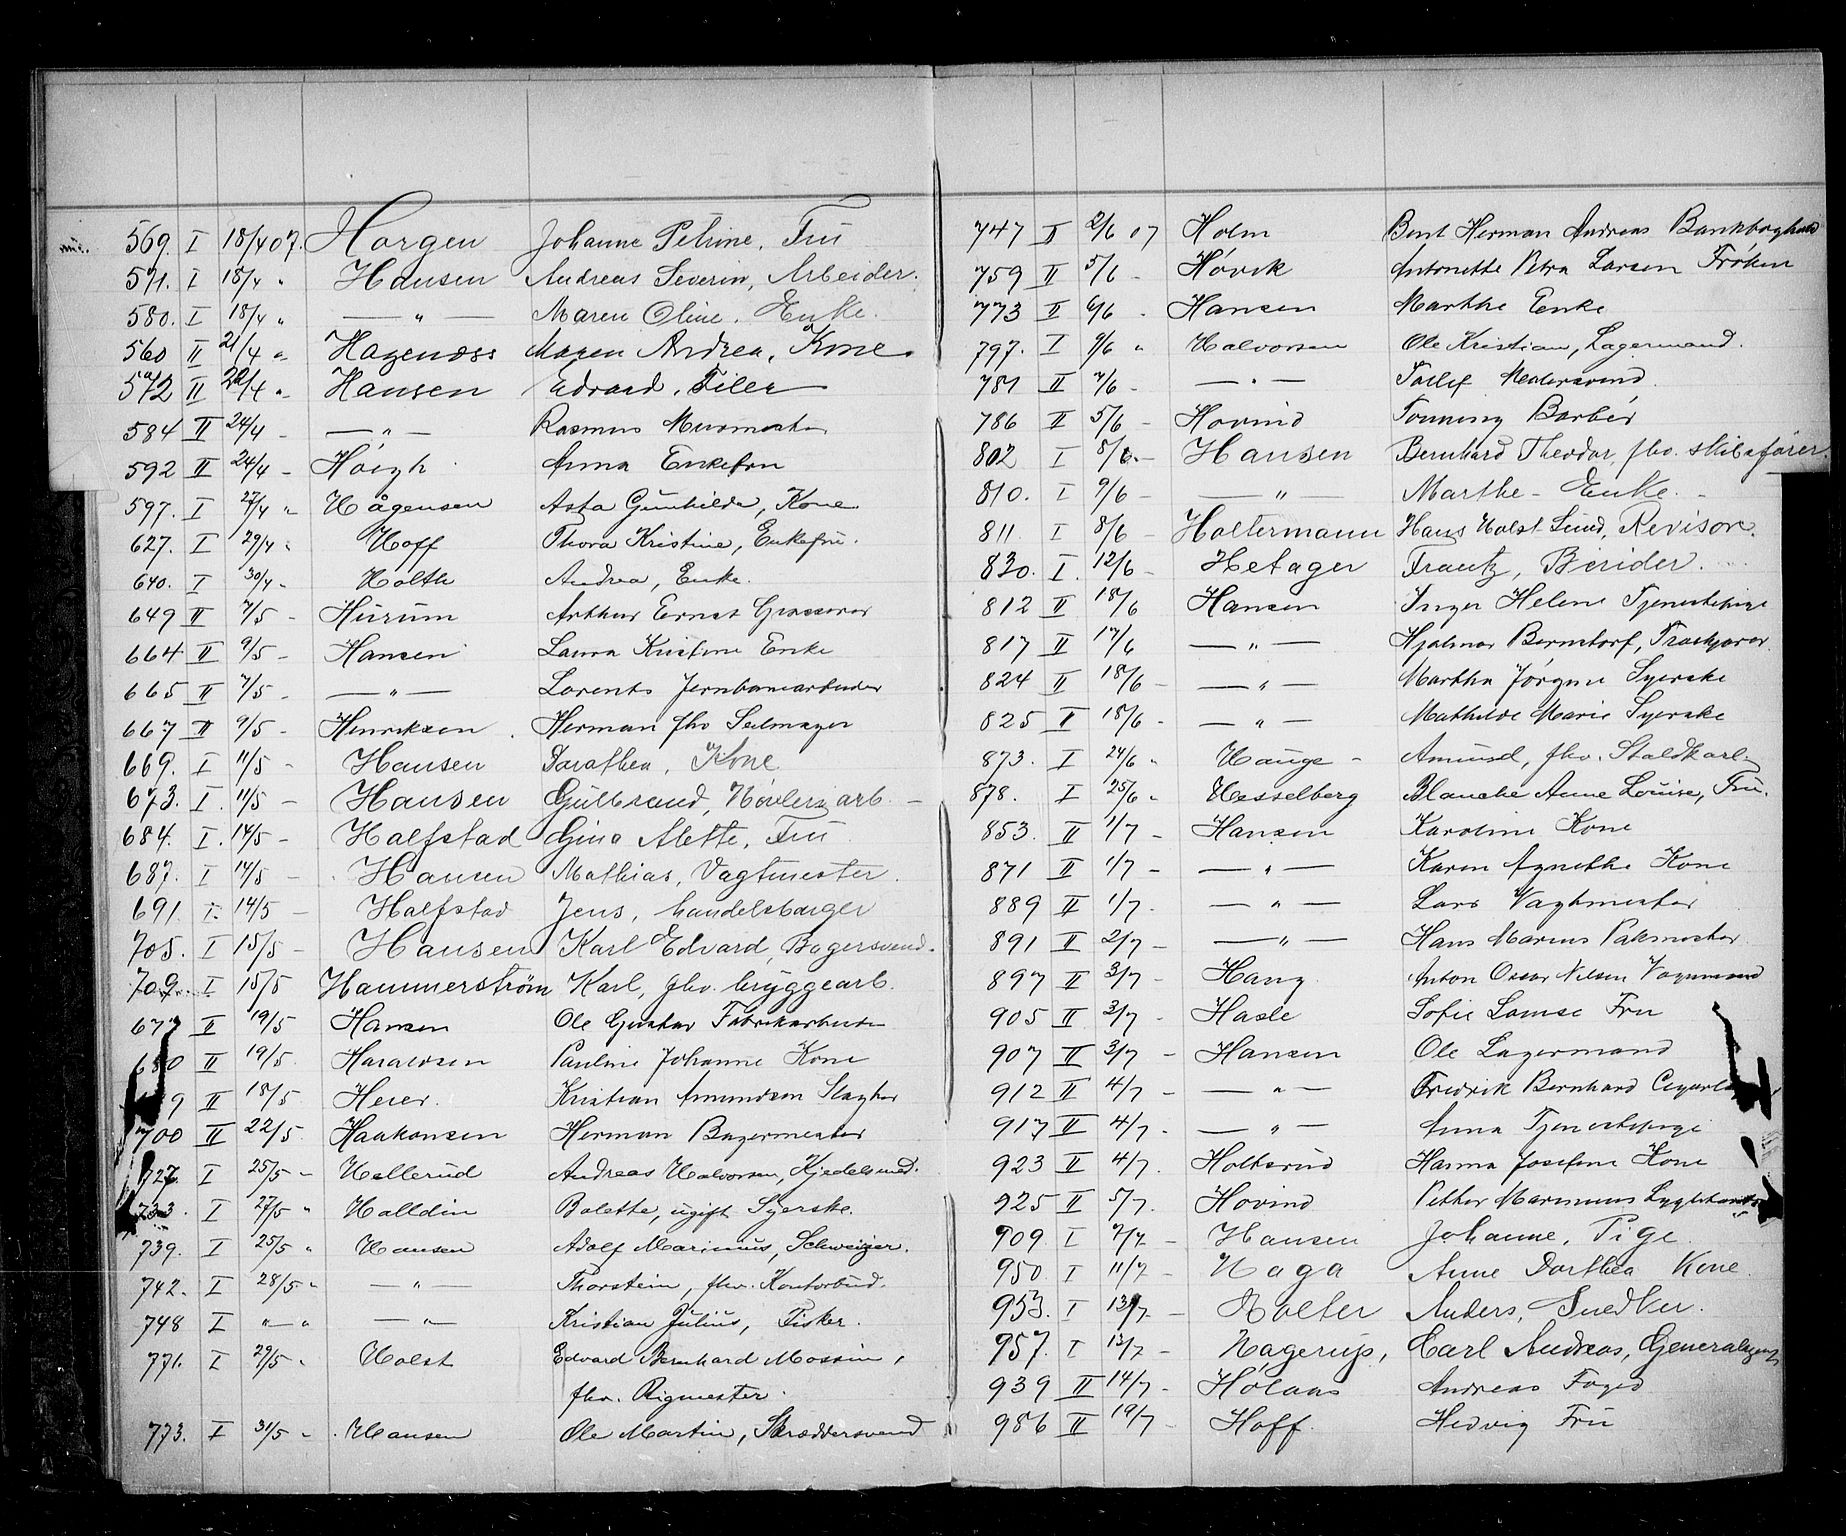 569. I 18/4 07. Horgen Johanne Petrine, Fru
571. I 18/4 " Hansen Andreas Severin, Arbeider.
580. I 18/4 " — " — Maren Oline, Enke.
560 II 21/4 " Hagenæss Maren Andrea, Kone.
572 II 22/4 " Hansen Edvard, Filer
584 II 24/4 - — " — Rasmus Murmester
592 II 24/4 - Høigh Anna Enkefru
597. I 27/4 " Hågensen Asta Gunhilda, Kone
627. I 29/4 " Hoff Thora Kristine, Enkefru.
640. I 30/4 - Holth Andrea, Enke.
649 II 7/5 - Hurum Arthur Ernst Grosserer
664 II 9/5 - Hansen Laura Kristine Enke
665 II 7/5 - — " — Lorents Jernbanearbeider
667 II 9/5 - Henriksen Herman fhv Seilmager
669. I 11/5 - Hansen Dorathea, Kone
673. I. 11/5 - Hansen Gulbrand, Høvleriarb.
684. I. 14/5 - Halfstad Gina Alette, Fru
687. I 14/5 - Hansen Mathias, Vagtmester.
691 I. 14/5 - Halfstad Jens, handelsborger
705. I 15/5 - Hansen Karl Edvard, Bagersvend.
709. I 15/5 Hammerstrøm Karl, fhv. bryggearb.
677 II 19/5 Hansen Ole Gustav Fabrikarbeider
680 II 19/5 Haraldsen Pauline Johanne Kone
9 II 18/5 Heier. Kristian Amundsen Slagter
700 II 22/5 Haakonsen Herman Bagermester
727. I 25/5 - Hellerud Andreas Halvorsen, Kjedelsmed.
733. I 27/5 " Halldin Bolette, ugift Syerske.
739. I 25/5 " Hansen Adolf Marinius, Schweizer.
742. I 28/5 " — " — Thorstein, fhv. Kontorbud.
748 I " — " — " — Kristian Julius, Fisker.
771. I 29/5 " Holst Edvard Bernhard Mossin,
fhv. Rigmester.
773. I 31/5 - Hansen Ole Martin, Skræddersvend
747 II 2/6 07 Holm Bent Herman Andreas
759 II 5/6 - Høvik Antonette Petra Larsen Frøken
773 II 6/6 - Hansen Marthe Enke
797. I 9/6 " Halvorsen Ole Kristian, Lagermand.
781 II 7/6 - — " — Tollef
786 II 5/6 - Hovind Tønning Barbér
802 I 8/6 - Hansen Bernhard Theodor, fhv. skibsfører.
810. I 9/6 - — " — Marthe - Enke. -
811. I 8/6 - Holtermann Hans Holst Lund, Revisor.
830. I. 12/6 - Hetager Frantz, Berider.
812 II 18/6 Hansen Inger Helene Tjenestepige
817 II 17/6 — " — Hjalmar Bernstorf,
824 II 18/6 - — " — Martha Jørgine Syerske
825 II 18/6 - — " — Mathilde Marie Syerske
873. I 24/6 " Hauge - Amund, fhv. Staldkarl
878. I 25/6 " Hesselberg Blanche Anne Louise, Fru.
853. II 1/7 - Hansen Karoline Kone
871 II 1/7 - — " — Karen Agnethe Kone
889 II 1/7 - — " — Lars Vagtmester
891 II 2/7 - — " — Hans Marius Pakmester
897 II 3/7 - Haug Anton Oscar Nilsen Vognmand
905 II 3/7 - Hasle Sofie Lovise Fru
907 II 3/7 - Hansen Ole Lagermand
912 II 4/7 - — " — Fredrik Bernhard
917 II 4/7 - — " — Anna Tjenestepige
923 II 4/7. Holterud Hanna Josefine Kone
925 II 5/7. Hovind Petter Marinius
909 I 7/7 - Hansen Johanne, Pige.
950. I 11/7 - Haga Anne Dorthea Kone.
953. I 13/7 - Holter Anders, Snedker.
957. I 13/7 - Hagerup, Carl Andreas, Generalagent
939 II 14/7 - Hølaas Andreas Foged
986 II 19/7 - Hoff. Hedvig Fru